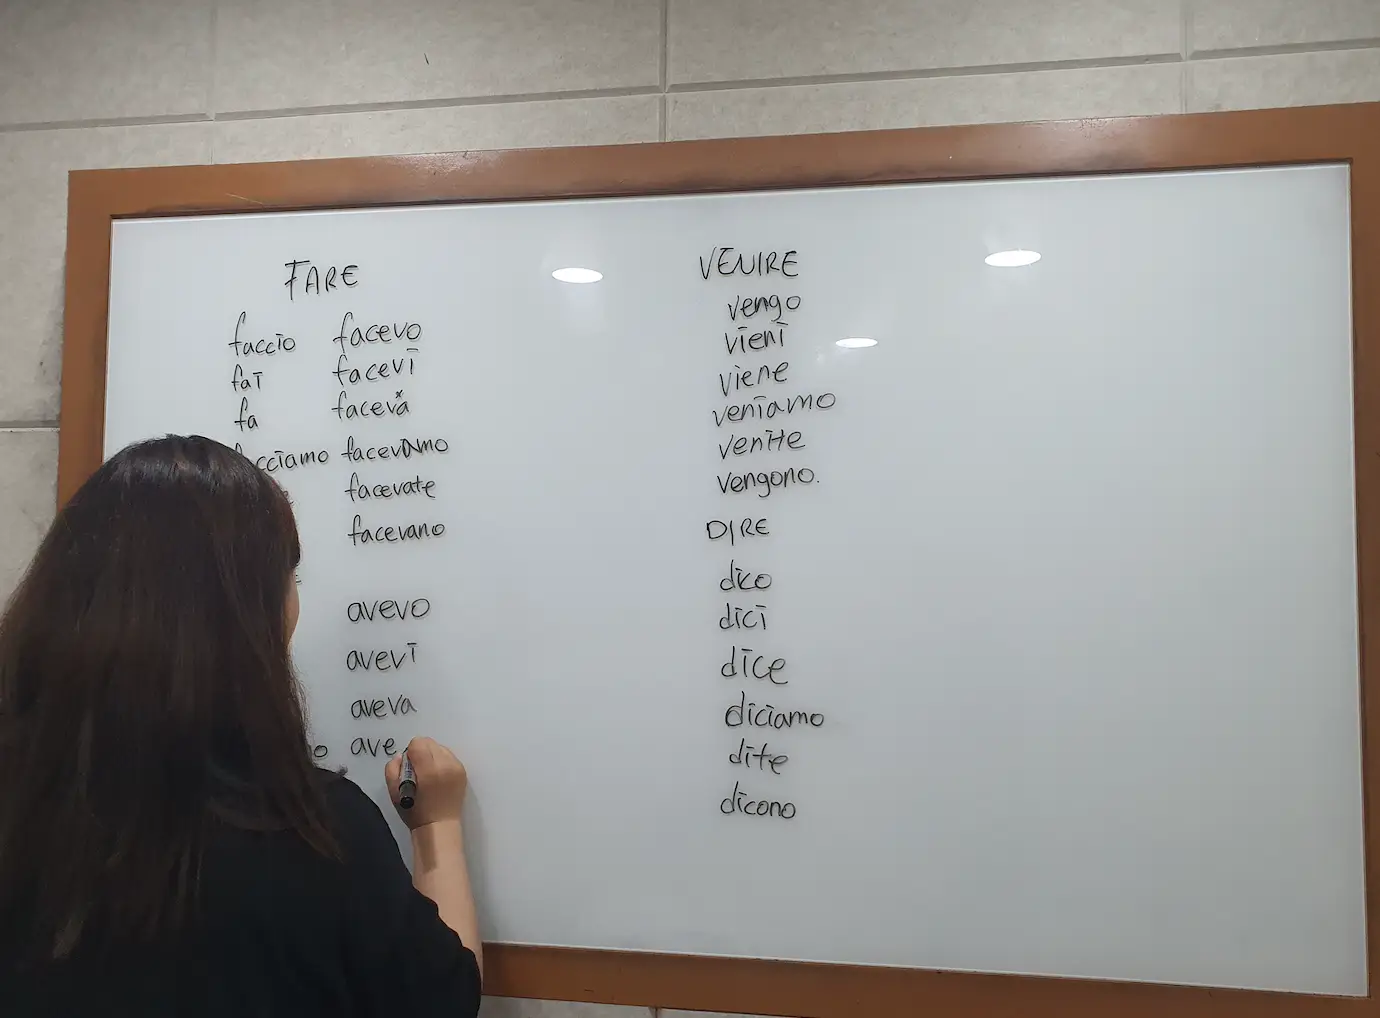 FARE
faccio facevo
fai facevi
fa faceva
facevamo
facevate
facevano
avevo
avevi
aveva
ave
VENIRE
vengo
vieni
viene
veniamo
venite
vengono.
DIRE
dico
dici
dice
diciamo
dite
dicono